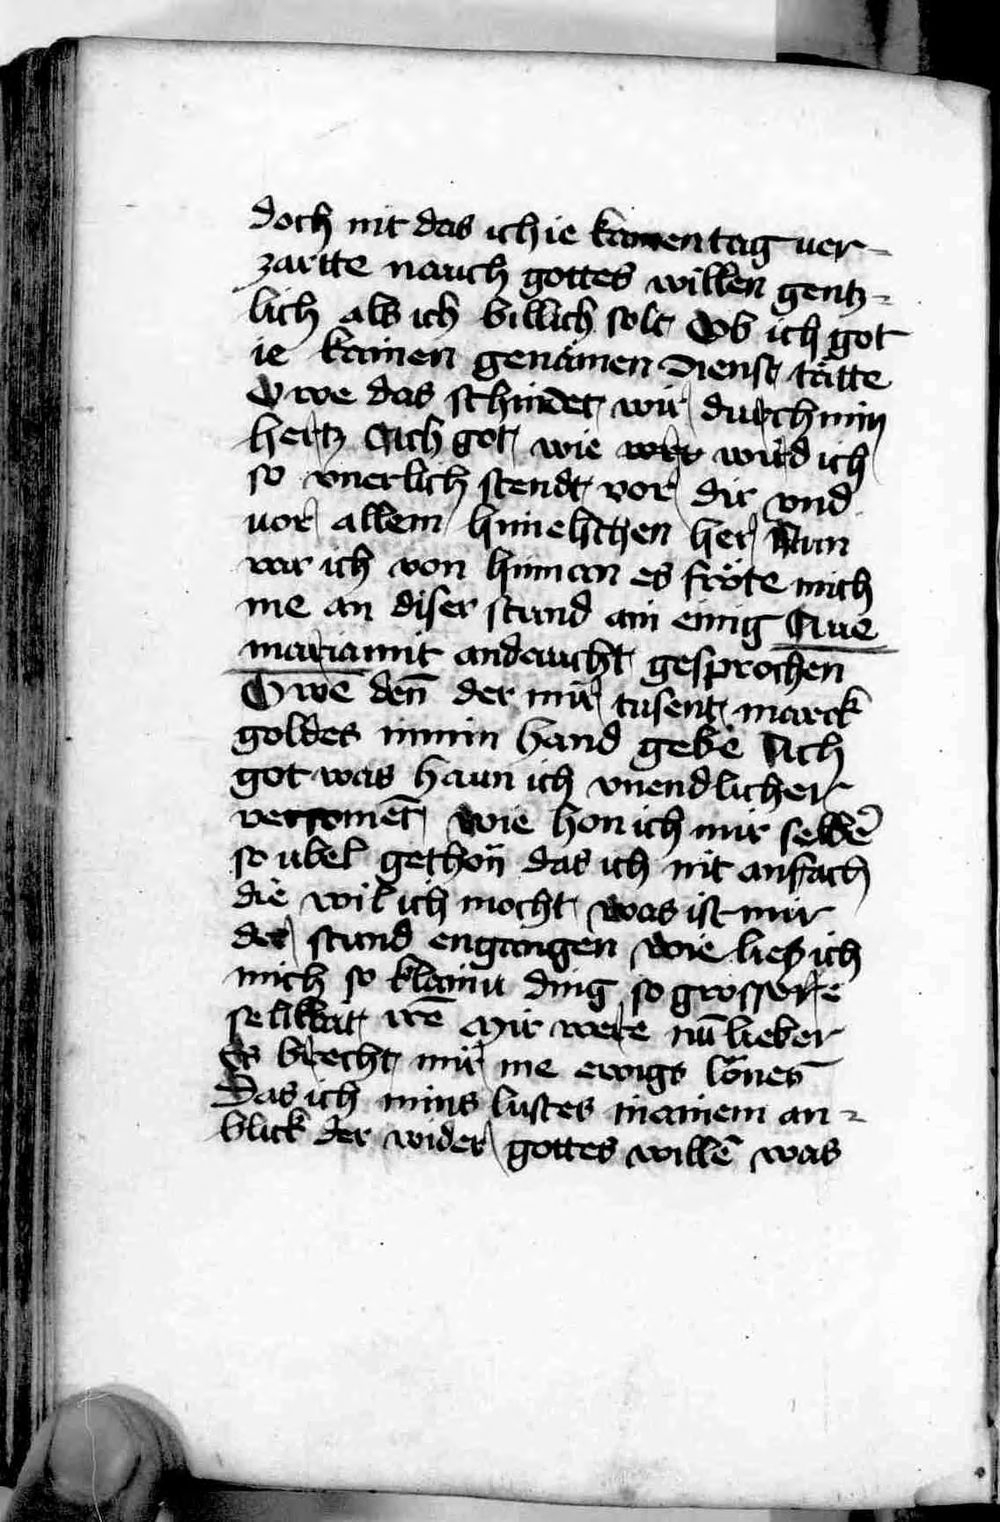 doch nit das ich ie kainen tag uer-
zartte nauch gottes willen gentz-
lich als ich billich solt Ob ich got
ie kainen genämen dienst tätte
Owe das schindet mir durch min
hertz Ach got wie wird ich
so vnerlich stendt vor dir vnd
uor allem himelschen her Nun
var ich von hinnan es fröte mich
me an diser stund ain einig Aue
maria mit andaucht gesprochen
Owe den̄ der mir tusent marck
goldes in min hand gebe Ach
got was haun ich vnendlicher
versomēt wie hon ich mir selbē
so ubel gethon̄ das ich nit anfach
die wil ich mocht was ist mir
der stund engangen wie lies ich
mich so klainu ding so grosser
selikait irē Mir were nū lieber
Es brecht mir me ewigs lönes
Das ich mins lustes in ainem an-
blick der wider gottes willē was